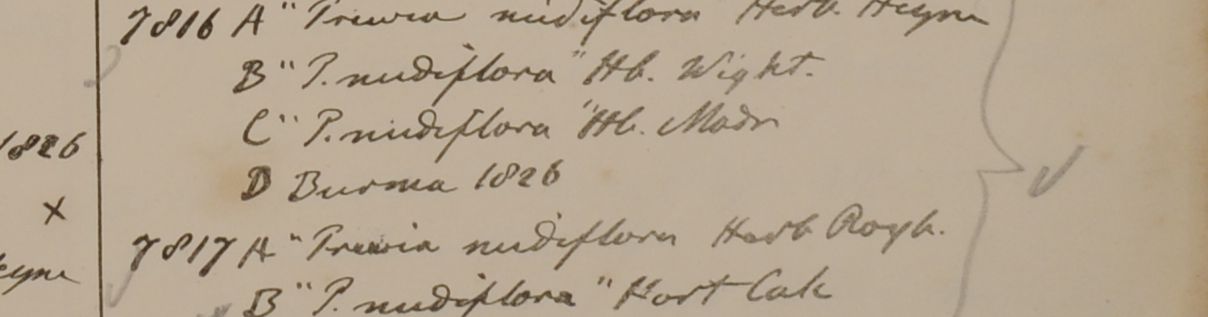 7816 A " Trewia nudiflora Herb. Heyne
B " T. nudiflora " Hb. Wight.
C " T. nudiflora " Hb. Madr
D Burma 1826
1826
x
7817 A " Trewia nudiflora Herb Roxb.
eyne
B " T. nudiflora " Hort Calc